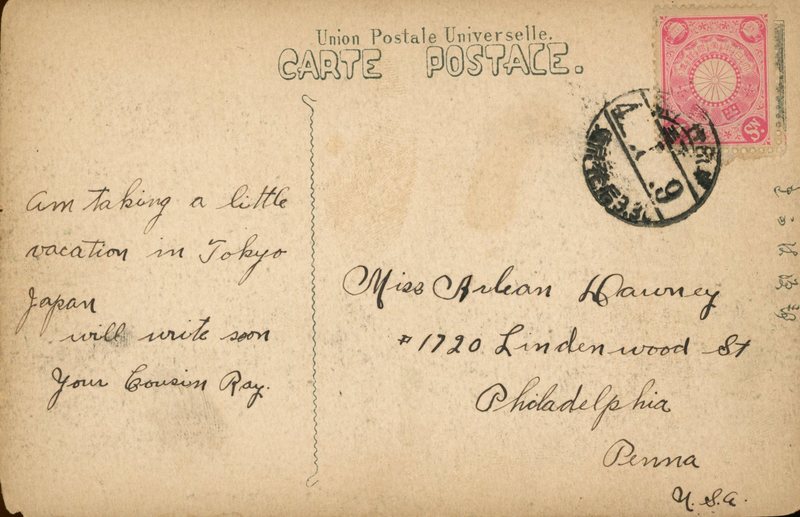 Union Postale Universelle.
CARTE POSTALE.
am taking a little
vacation in Tokyo
Japan
will write soon
Your Cousin Ray.
Miss Arlean Dawney
#1720 Lindenwood St
Philadelphia
Penna
U.S.A.
4. 9